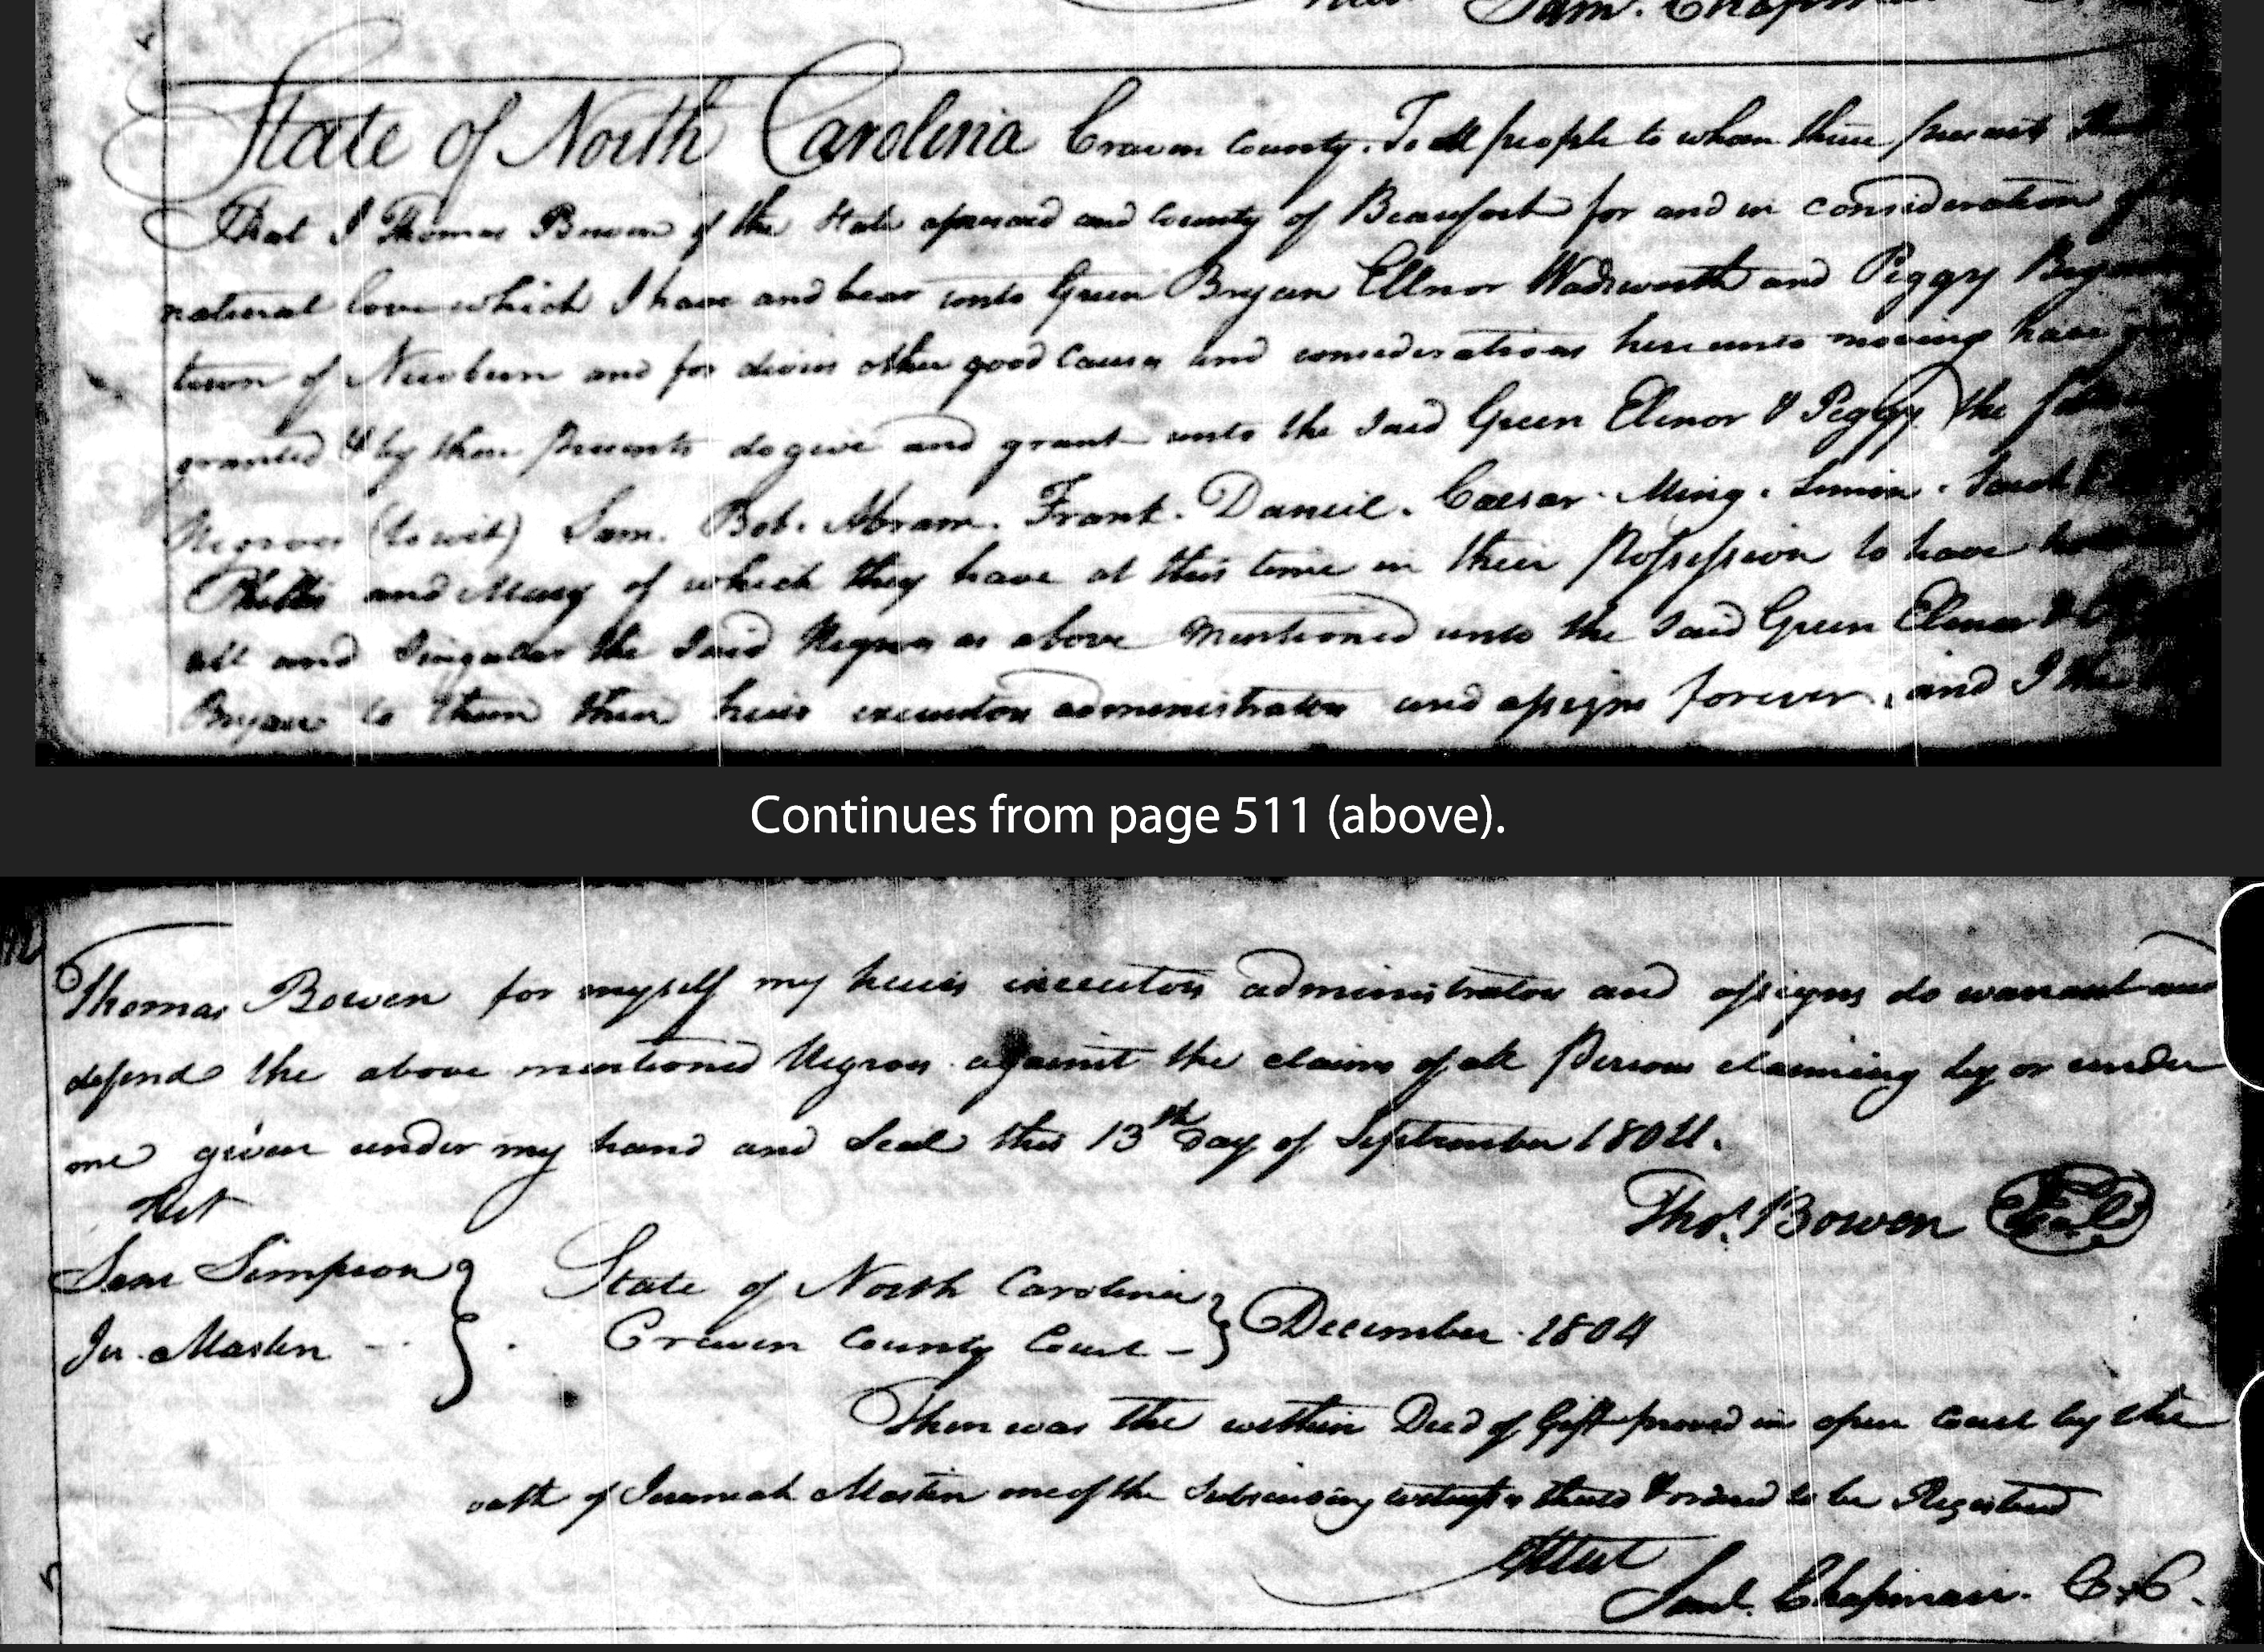 Saml. Chapman
State of North Carolina Craven County. To all people to whom these presents
That I Thomas Bowen of the State aforesaid and County of Beaufort for and in consideration of
natural love which I have and bear unto Green Bryan Ellnor Wadsworth and Peggy Bryan
town of Newbern and for divers other good Causes and considerations hereunto moving have
granted & by these presents do give and grant unto the said Green Elenor & Peggy the
Negroes (to wit) Sam. Bob. Abram. Frank. Daneil. Caesar. Ming. Simon. Sarah
Phillis and Mary of which they have at this time in their Possession to have
all and Singullar the Said Negros as above Mentioned unto the said Green Elenor &
Bryan to them their heirs executors administrators and assigns forever, and I the
Continues from page 511 (above).
Thomas Bowen for myself my heirs executors administrators and assigns do warrant and
defend the above mentioned Negros against the claims of all Persons claiming by or under
me given under my hand and Seal this 13th Day of September 1804.
Test
Thos. Bowen Seal
Saml Simpson
State of North Carolina
Jer. Masten
Craven County Court
December 1804
Then was the within Deed of Gift proved in open Court by the
oath of Jeremiah Masten one of the Subscribing witness's thereto & ordered to be Registered
Attest
Saml. Chapman. C.C.